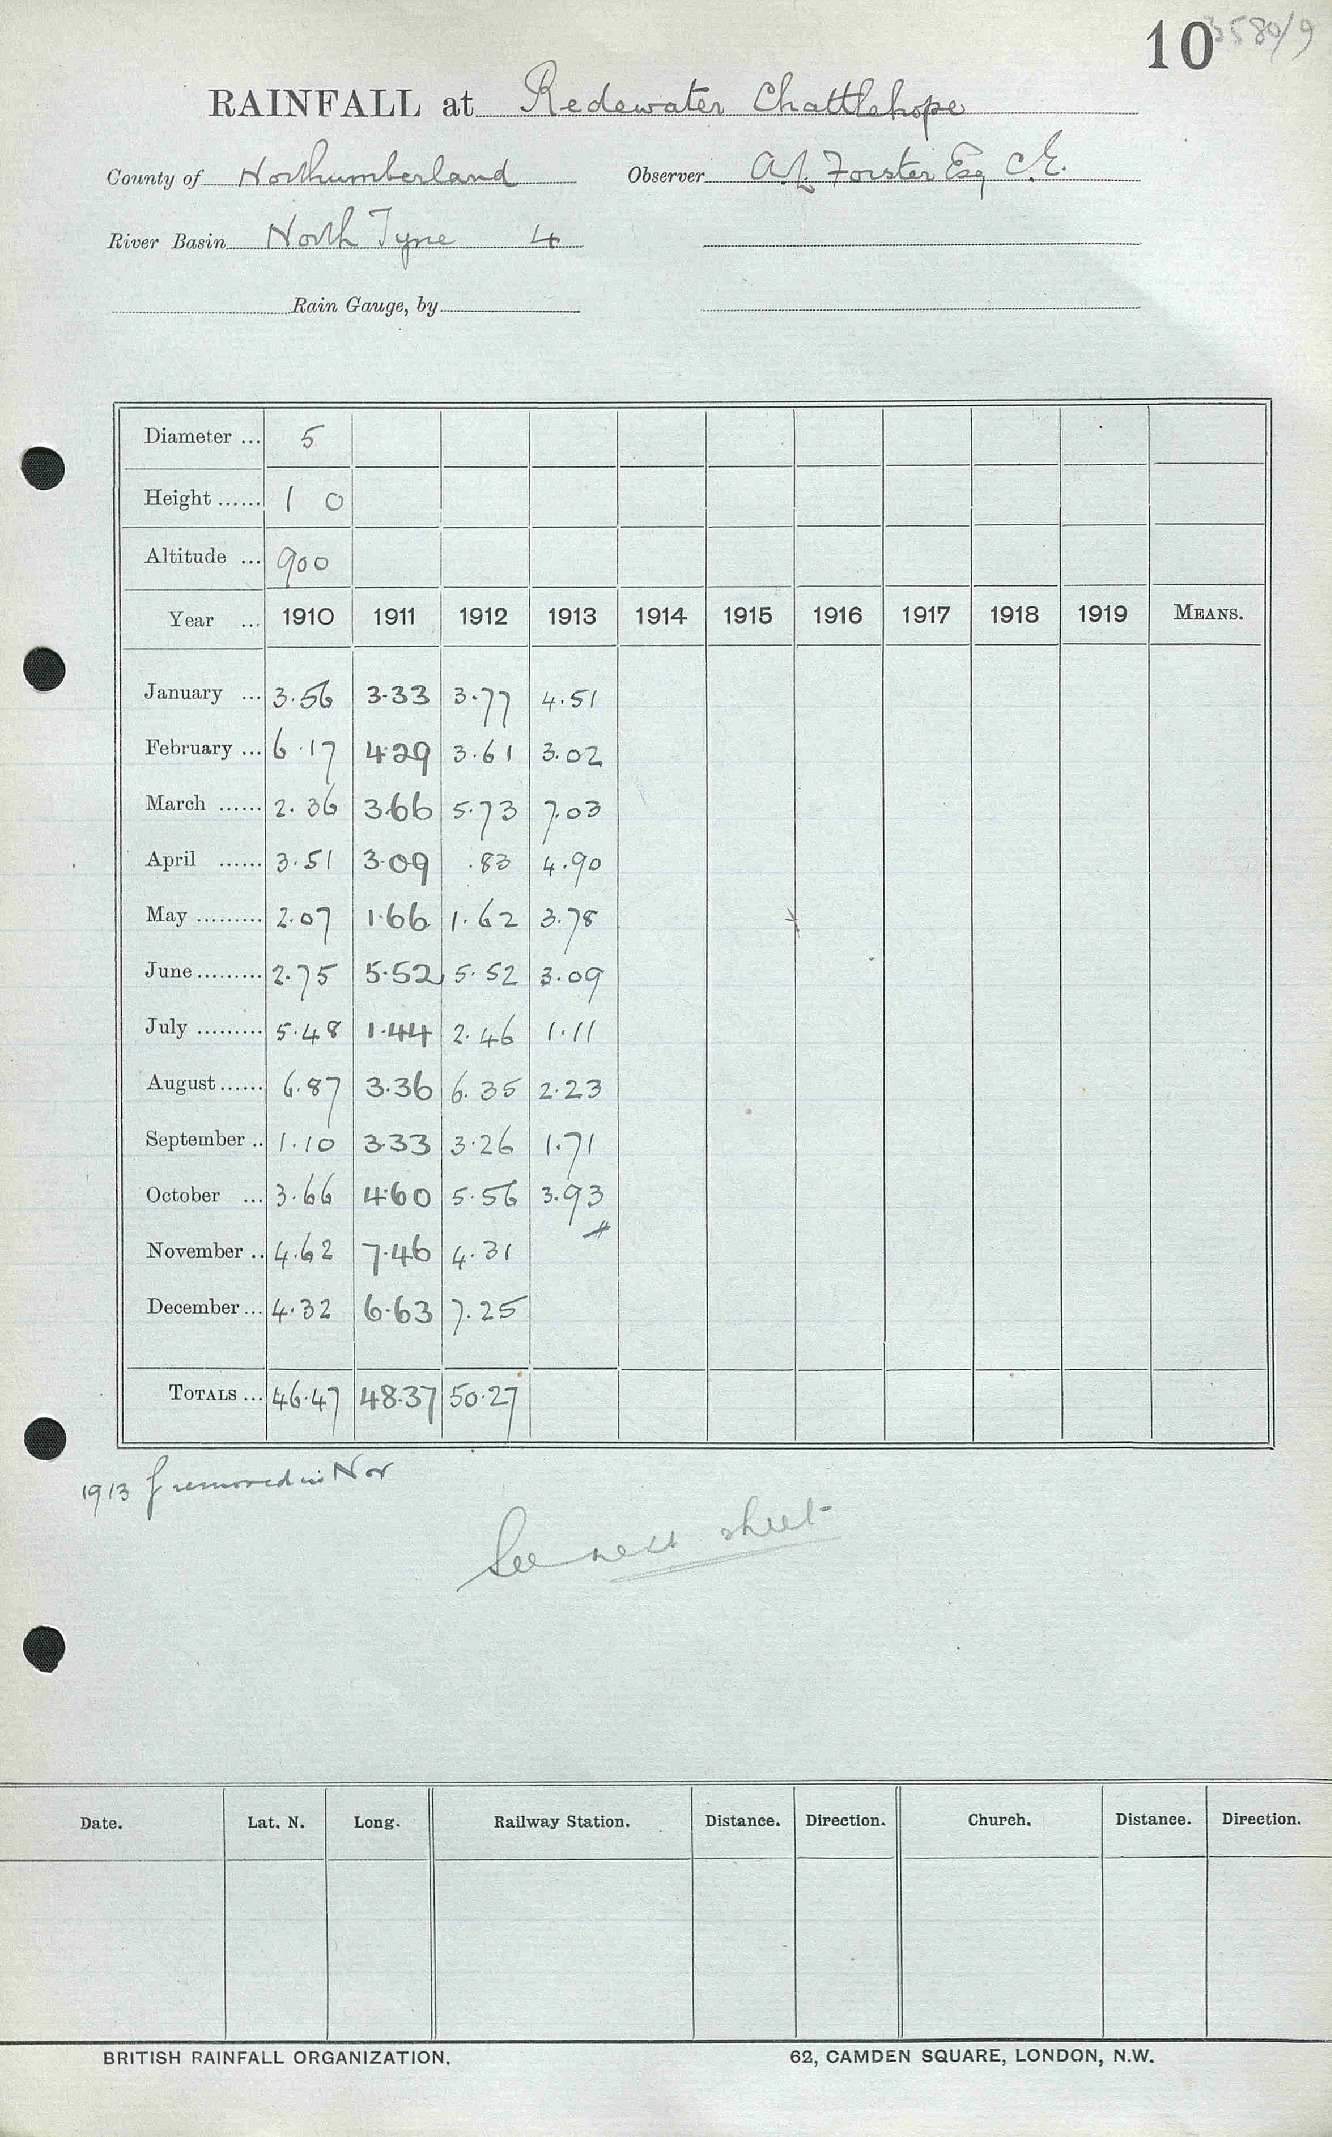 10 3580/9
RAINFALL at Redewater Chattlehope
County of Northumberland Observer A.L. Forster Esq C.E.
River Basin North Tyne 4
Rain Gauge, by
Diameter ... 5
Height ...... 1 0
Altitude ... 900
Year ... 1910 1911 1912 1913 1914 1915 1916 1917 1918 1919 MEANS.
January ... 3.56 3.33 3.77 4.51
February ... 6.17 4.29 3.61 3.02
March ...... 2.36 3.66 5.73 7.03
April ...... 3.51 3.09 .83 4.90
May ......... 2.07 1.66 1.62 3.78
June ......... 2.75 5.52 5.52 3.09
July ......... 5.48 1.44 2.46 1.11
August ...... 6.87 3.36 6.35 2.23
September .. 1.10 3.33 3.26 1.71
October ... 3.66 4.60 5.56 3.93
November .. 4.62 7.46 4.31
December ... 4.32 6.63 7.25
TOTALS ... 46.47 48.37 50.27
1913 removed in Nov
See next sheet
Date. Lat. N. Long. Railway Station. Distance. Direction. Church. Distance. Direction.
BRITISH RAINFALL ORGANIZATION. 62, CAMDEN SQUARE, LONDON, N.W.